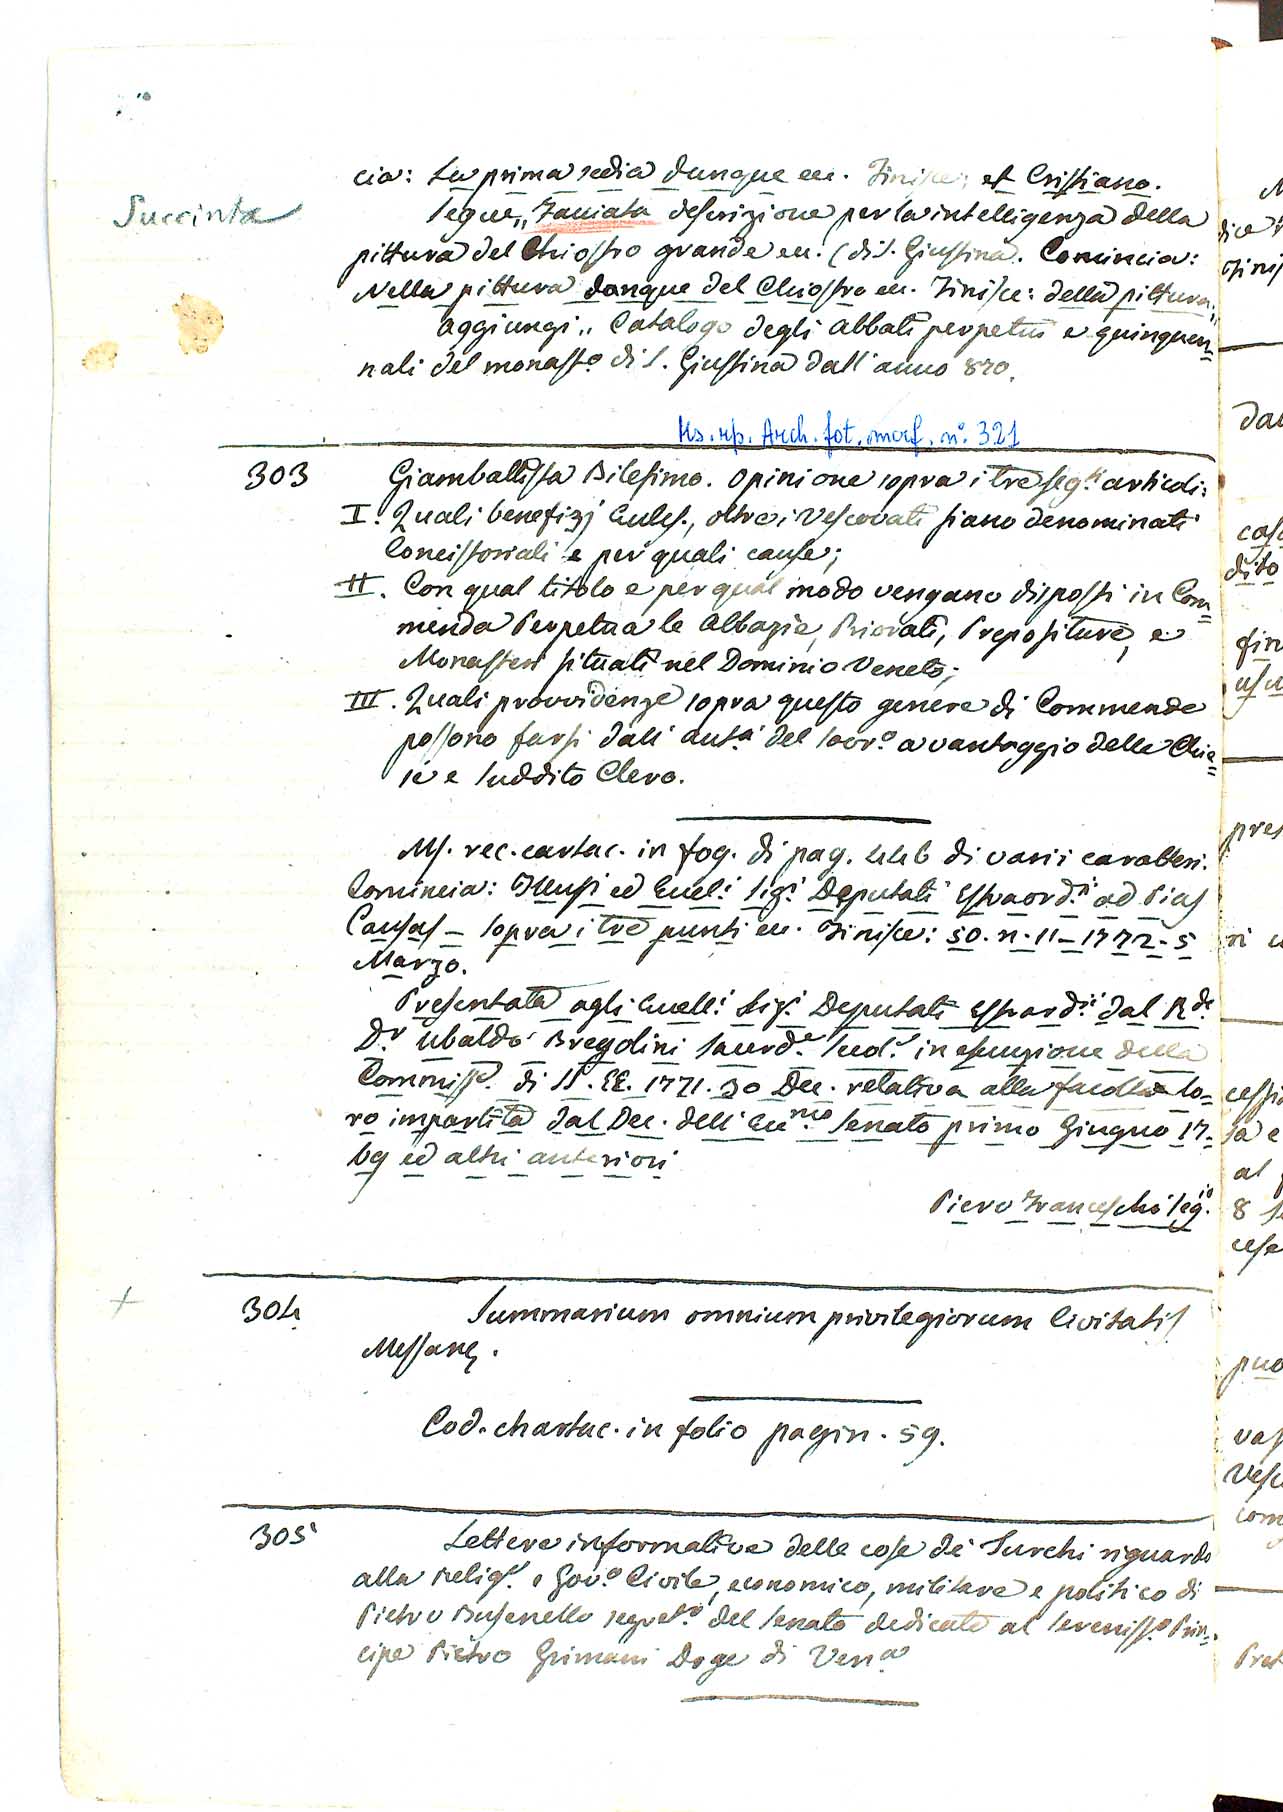 cia: La prima sedia dunque ec. Finisce: et Cristiano.
Succinta
Segue „ Fauiata descrizione per la intelligenza della
pittura del Chiostro grande ec. (di S. Giustina. Comincia:
Nella pittura donque del Chiostro ec. Finisce: della pittura.„
Aggiungi „ Catalogo degli Abbati perpetui e quinquen=
nali del monast.o di S. Giustina dall'anno 820.
Ms. rip. Arch. fot. morf. n.o 321
303 Giambattista Bilesimo. Opinione sopra i tre seg.ti articoli:
I. Quali benefizj Eccles., oltre i Vescovati siano denominati
Concistoriali e per quali cause;
II. Con qual titolo e per qual modo vengano disposti in Com=
menda Perpetua le Abbazie, Priorati, Prepositure, e
Monasteri situati nel Dominio Veneto;
III. Quali provvidenze sopra questo genere di Commende
possono farsi dall' aut.à del Sovr.o a vantaggio delle Chie=
se e suddito Clero.
Ms. rec. cartac. in fog. di pag. 446 di varii caratteri.
Comincia: Illusi ed Eccel.i Sig.i Deputati Estraord.ii ad Pias
Causas – sopra i tre punti ec. Finisce: 50. n. 11 – 1772. 5
Marzo.
Presentata agli Eccell.i Sig.i Deputati Estraord.ii dal R.do
D.r Ubaldo Bregolini Sacerd.e Secol.e in esecuzione della
Commiss.e di SS. EE. 1771. 30 Dec. relativa alla facoltà lo=
ro impartita dal Dec. dell' Ecc.mo Senato primo Giugno 17=
69 ed altri anteriori
Piero Franceschi Seg.io
304 Summarium omnium privilegiorum Civitatis
Messanę.
Cod. chartac. in folio pagin. 59.
305 Lettere informative delle cose de' Turchi riguardo
alla Relig.e e Gov.o Civile, economico, militare e politico di
Pietro Busenello segret.o del Senato dedicate al Sereniss.o Prin=
cipe Pietro Grimani Doge di Ven.a